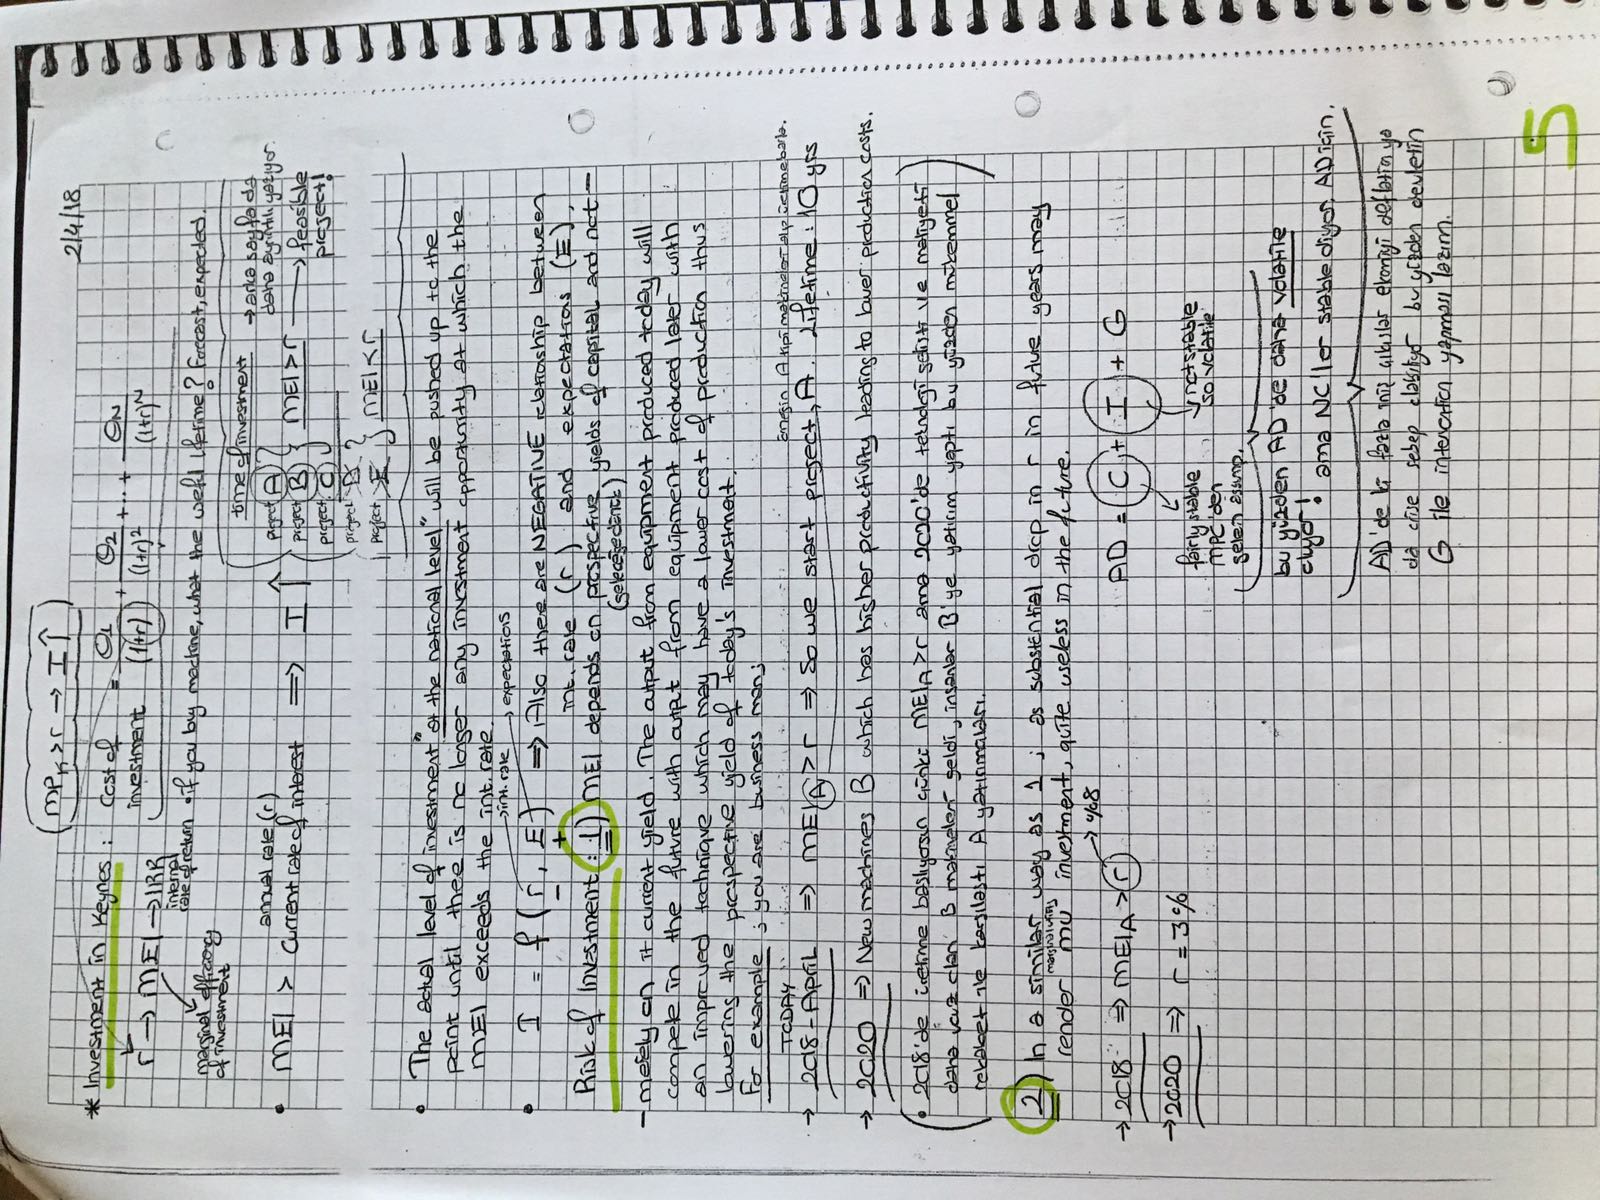 2/4/18
MPK > r → I↑
* Investment in Keynes : Cost of investment = Q1/(1+r) + Q2/(1+r)² + ... + QN/(1+r)^N
r → MEI → IRR
internal rate of return
marginal efficiacy of investment
• if you buy machine, what the useful lifetime? Forecast, expected.
annual rate (r)
• MEI > current rate of interest ⇒ I↑
time of investment → arka sayfada daha ayrıntılı yazıyor.
project A
project B } MEI > r → feasible project!
project C
project D
project E } MEI < r
• The actual level of investment "at the national level" will be pushed up to the
point until there is no longer any investment opportunity at which the
MEI exceeds the int. rate.
→ int. rate , expectations
• I = f ( r , E ) ⇒ Also there are NEGATIVE relationship between
− +
int. rate (r) and expectations (E),
Risk of Investment : 1) MEI depends on prospective yields of capital and not -
(gelecejedenk)
- merely on it current yield. The output from equipment produced today will
compete in the future with output from equipment produced later with
an improved technique which may have a lower cost of production thus
lowering the prospective yield of today's investment.
For example ; you are business man;
TODAY
örneğin A tipi makineler alıp üretime başla.
→ 2018-APRIL ⇒ MEIA > r ⇒ So we start project, A. Lifetime : 10 yrs
→ 2020 ⇒ New machines B which has higher productivity leading to lower production costs.
( • 2018'de üretime başlıyosun çünkü MEIA > r ama 2020'de teknoloji gelişti ve maliyeti
daha ucuz olan B makineler geldi, insanlar B'ye yatırım yaptı bu yüzden mükemmel
rekabet ile karşılaştı A yatırımcıları. )
2) In a similar way as 1 ; as substential drop in r in future years may
render mu investment, quite useless in the future.
→ %8
→ 2018 ⇒ MEIA > r
→ 2020 ⇒ r = 3%
AD = C + I + G
fairly stable MPC'den gelen assump.
not stable so volatile
bu yüzden AD'de daha volatile oluyor!
ama NC'ler stable diyor, AD için.
AD'de ki fazla iniş çıkışlar ekonomiyi deflation ya
da crise sebep olabiliyo bu yüzden devletin
G ile intervention yapması lazım.
5